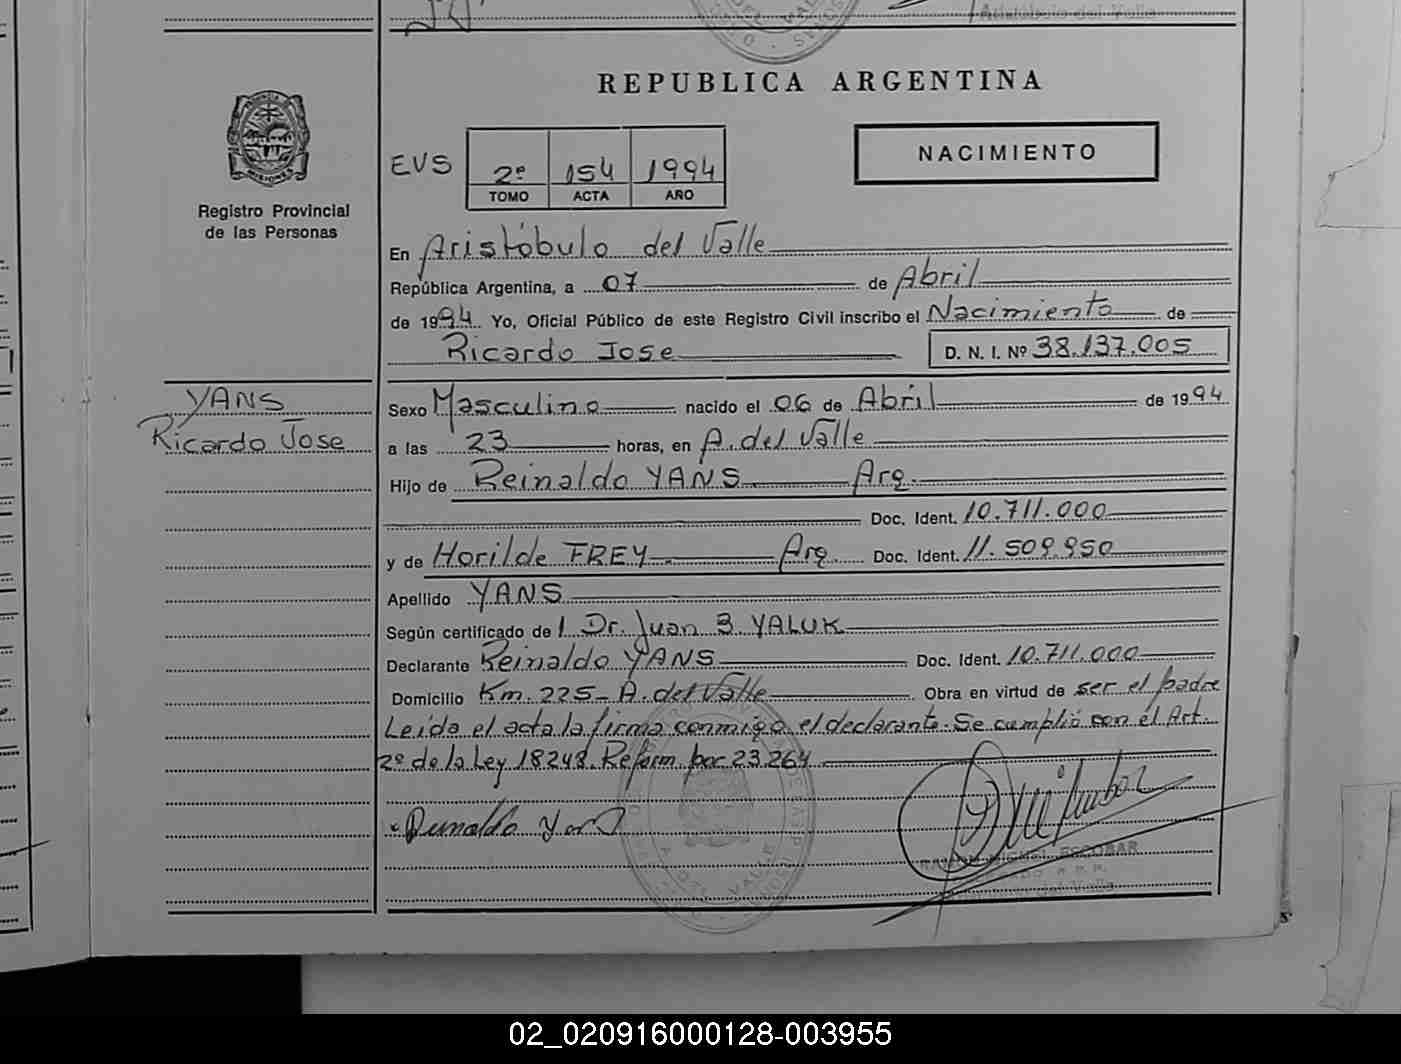 Aristóbulo del Valle
REPUBLICA ARGENTINA
EVS 2º 154 1994
TOMO ACTA AÑO
NACIMIENTO
MISIONES
Registro Provincial
de las Personas
En Aristóbulo del Valle
República Argentina, a 07 de Abril
de 1994 Yo, Oficial Público de este Registro Civil inscribo el Nacimiento de
Ricardo Jose D. N. I. Nº 38.137.005
YANS
Ricardo Jose
Sexo Masculino nacido el 06 de Abril de 1994
a las 23 horas, en A. del Valle
Hijo de Reinaldo YANS Arg.
Doc. Ident. 10.711.000
y de Horilde FREY Arg. Doc. Ident. 11.509.950
Apellido YANS
Según certificado del Dr. Juan B. YALUK
Declarante Reinaldo YANS Doc. Ident. 10.711.000
Domicilio Km. 225 - A. del Valle Obra en virtud de ser el padre
Leída el acta la firma conmigo el declarante. Se cumplió con el Art.
2º de la Ley 18248. Reform por 23.264
RAMON MIGUEL ESCOBAR
A. DEL VALLE
02_020916000128-003955